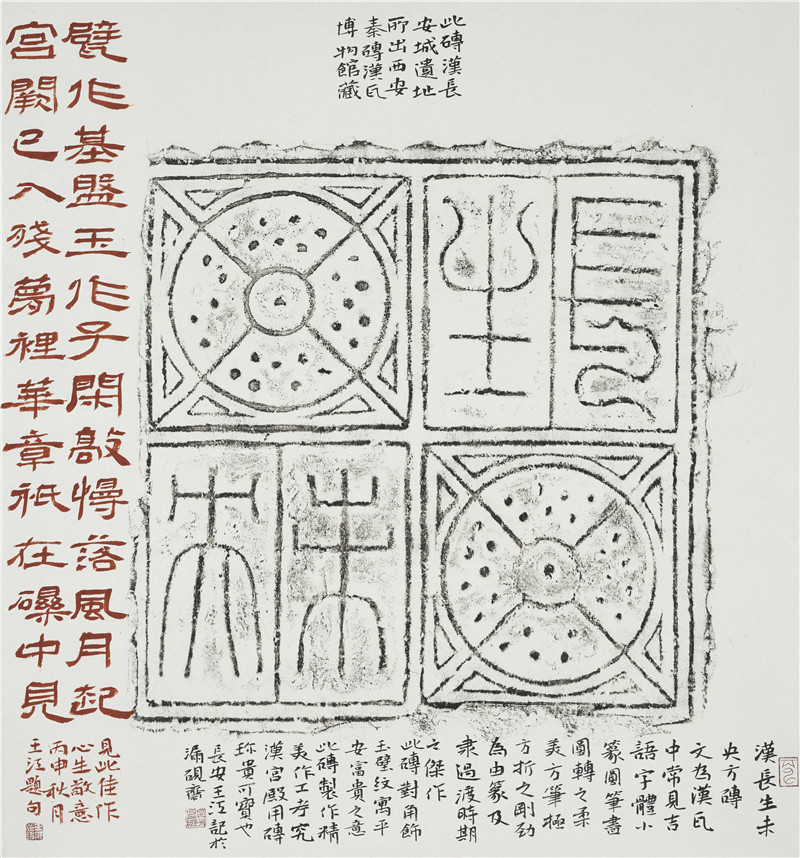 此磚漢長
安城遺址
所出西安
秦磚漢瓦
博物館藏
長
生
未
央
甓作基盤玉作子閑敲慢落風月起
宮闕已入殘萬裡華章祇在礫中見
見此佳作
心生敬意
丙申秋月
王江題句
漢長生未
央方磚
文為漢瓦
中常見吉
語字體小
篆圓筆盡
圓轉之柔
美方筆極
方折之剛勁
為由篆及
隸過渡時期
之傑作
此磚對角飾
玉璧紋寓平
安富貴之意
此磚製作精
美作工考究
漢宮殿用磚
珍貴可寶也
長安王江記於
漏硯齋